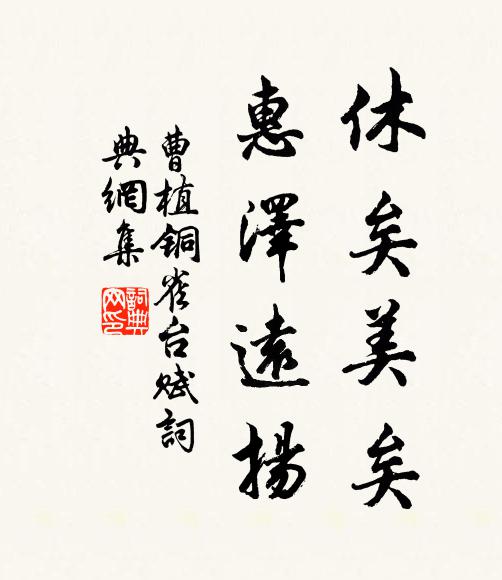 休矣美矣
惠澤遠揚
曹植銅雀台賦詞
典網集
詞典
网印